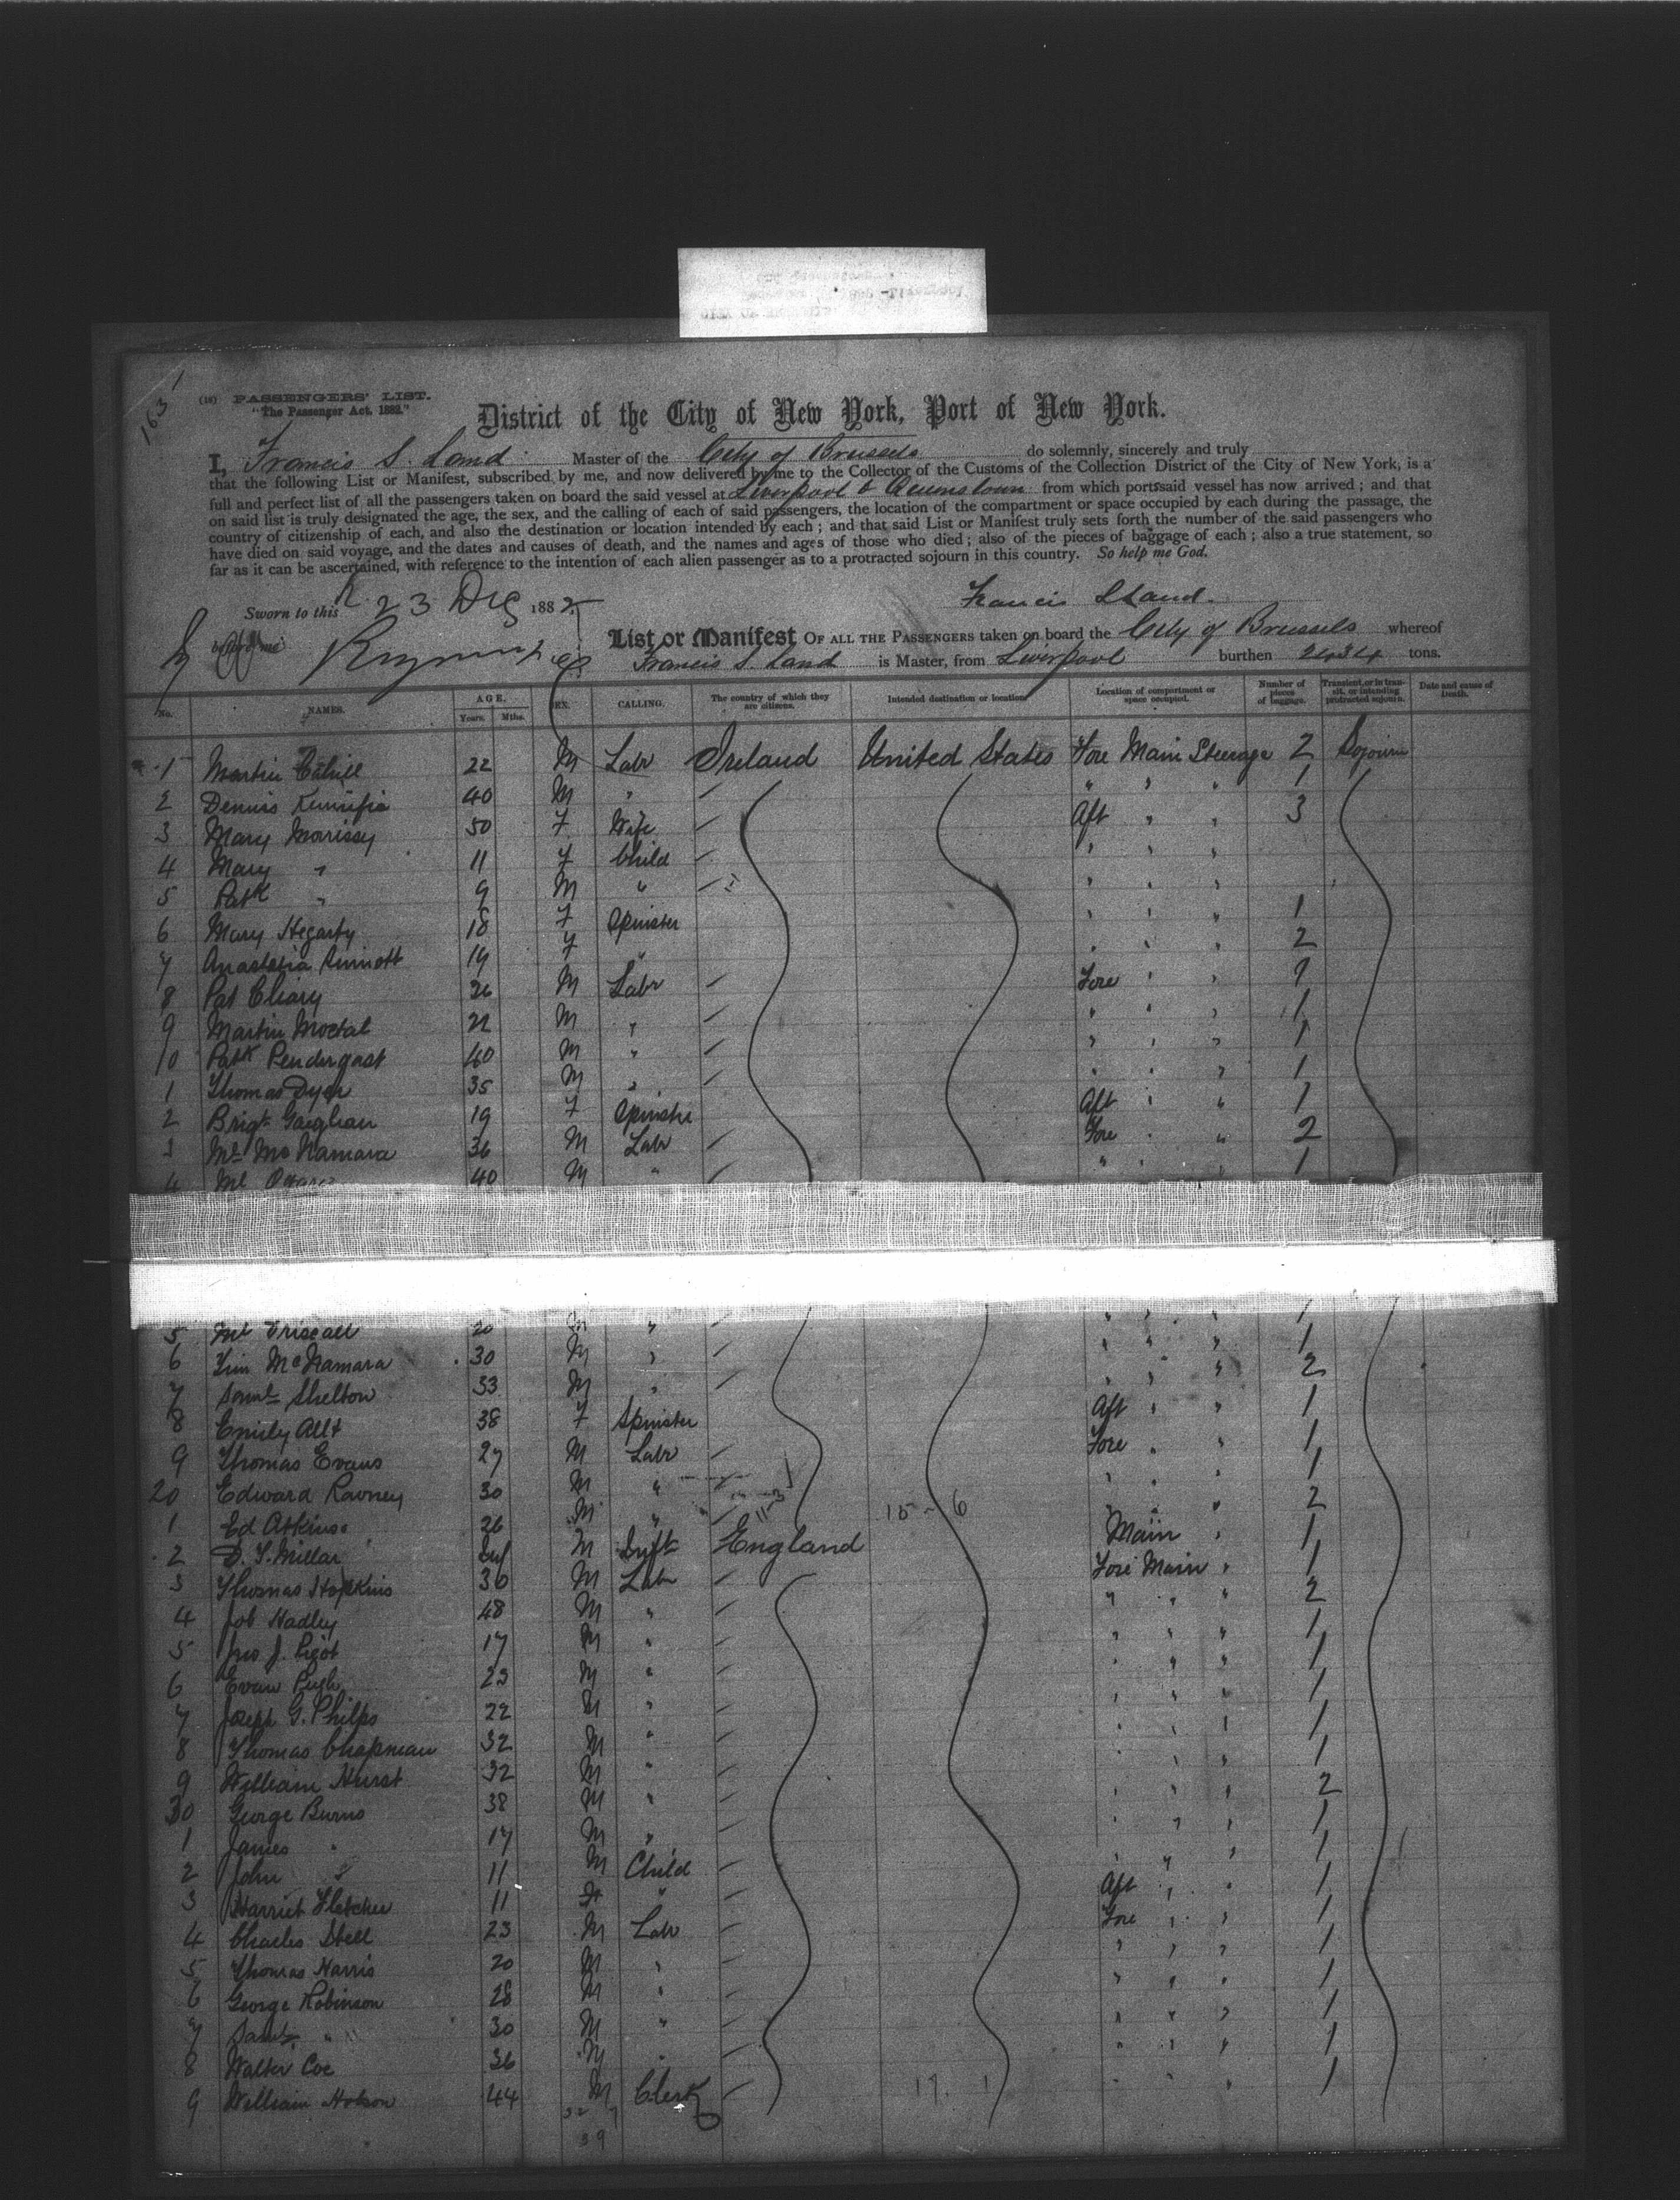 1
163
(18) PASSENGERS' LIST.
"The Passenger Act, 1882."
District of the City of New York, Port of New York.
I, Francis S. Land Master of the City of Brussels do solemnly, sincerely and truly
that the following List or Manifest, subscribed by me, and now delivered by me to the Collector of the Customs of the Collection District of the City of New York, is a
full and perfect list of all the passengers taken on board the said vessel at Liverpool & Queenstown from which port said vessel has now arrived; and that
on said list is truly designated the age, the sex, and the calling of each of said passengers, the location of the compartment or space occupied by each during the passage, the
country of citizenship of each, and also the destination or location intended by each; and that said List or Manifest truly sets forth the number of the said passengers who
have died on said voyage, and the dates and causes of death, and the names and ages of those who died; also of the pieces of baggage of each; also a true statement, so
far as it can be ascertained, with reference to the intention of each alien passenger as to a protracted sojourn in this country. So help me God.
Sworn to this 23 Dec 1882 Francis S Land.
before me
List or Manifest OF ALL THE PASSENGERS taken on board the City of Brussels whereof
Francis S. Land is Master, from Liverpool burthen 2434 tons.
No. NAMES. AGE. Years. Mths. SEX. CALLING. The country of which they are citizens. Intended destination or location Location of compartment or space occupied. Number of pieces of baggage. Transient, or in transit, or intending protracted sojourn. Date and cause of Death.
1 Martin Cahill 22 M Labr Ireland United States Fore Main Steerage 2 Sojourn
2 Dennis 40 M " " " " 1
3 Mary Morissy 50 F Wife Aft " " 3
4 Mary " 11 F Child " " "
5 Patk " 9 M " " " "
6 Mary Hegarty 18 F Spinster " " " 1
7 Anastatia Sinnott 19 F " " " " 2
8 Pat Cleary 26 M Labr Fore " "
9 Martin 22 M " " " " 1
10 Patk Pendergast 40 M " " " " 1
1 Thomas Dyer 35 M " " " " 1
2 Brigt 19 F Spinster Aft " " 1
3 Ml McNamara 36 M Labr Fore " " 2
4 Ml 40 M " " " 1
5 Ml Driscoll 20 M " " " "
6 Tim McNamara 30 M " " " " 1
7 Saml Shelton 33 M " " " " 2
8 Emily Allt 38 F Spinster Aft " " 1
9 Thomas Evans 27 M Labr Fore " " 1
20 Edward 30 M " " " 1
1 Ed Atkins 26 M " 11-3 15-6 " " 2
2 D. T. Millar Inf M England Main " 1
3 Thomas Hopkins 30 M Labr Fore Main " 1
4 Job Hadley 48 M " " " " 2
5 Jno J. Pigot 17 M " " " " 1
6 Evan Pugh 23 M " " " " 1
7 Joseph G. Philps 22 M " " " " 1
8 Thomas Chapman 32 M " " " " 1
9 William Hurst 32 M " " " " 1
30 George Burns 38 M " " " " 2
1 James " 17 M " " " " 1
2 John " 11 M Child " " " 1
3 Harriet Fletcher 11 F " Aft " " 1
4 Charles Stell 23 M Labr Fore " " 1
5 Thomas Harris 20 M " " " " 1
6 George Robinson 28 M " " " " 1
7 Saml " 30 M " " " " 1
8 Walter Coe 36 M " " " " 1
9 William Hobson 44 M Clerk " " " 1
32 7
39